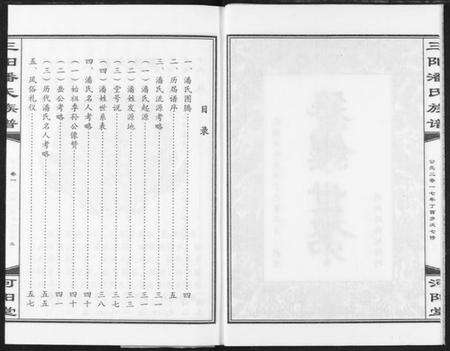 三阳潘氏族谱
公元二零一七年丁酉岁次七修
河阳堂
目录
一、潘氏图腾……四
二、历届谱序……五
三、潘氏源流考略……三一
（一）潘氏起源……三一
（二）潘姓发源地……三三
（三）堂号说……三七
（四）潘姓世系表……三八
四、潘氏名人考略……四十
（一）始祖季孙公像赞……四十
（二）岳公考略……四一
（三）历代潘氏名人考略……四五
五、风俗礼仪……五七
三阳潘氏族谱
卷一
河阳堂